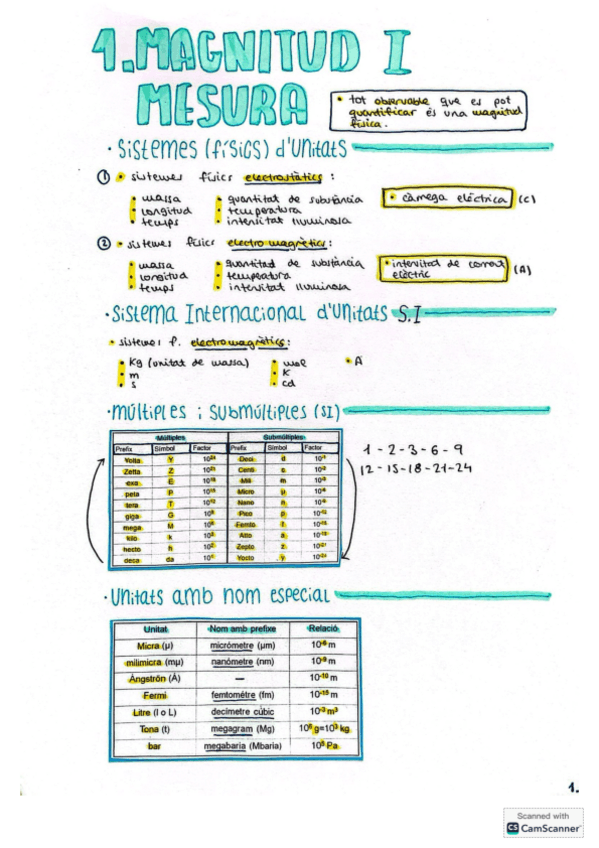 1. MAGNITUD I
MESURA
• tot observable que es pot
quantificar és una magnitud
física.
· Sistemes (físics) d'unitats
① • sistemes físics electrostàtics :
• massa • quantitat de substància • càrrega elèctrica (C)
• longitud • temperatura
• temps • intensitat lluminosa
② • sistemes físics electromagnètics :
• massa • quantitat de substància • intensitat de corrent
• longitud • temperatura elèctric (A)
• temps • intensitat lluminosa
· Sistema Internacional d'Unitats S.I
• sistemes f. electromagnètics :
• Kg (unitat de massa) • mol • A
• m • K
• s • cd
· Múltiples i Submúltiples (SI)
Múltiples Submúltiples
Prefix Símbol Factor Prefix Símbol Factor
Yotta Y 10²⁴ Deci d 10⁻¹
Zetta Z 10²¹ Centi c 10⁻²
exa E 10¹⁸ Mili m 10⁻³
peta P 10¹⁵ Micro μ 10⁻⁶
tera T 10¹² Nano n 10⁻⁹
giga G 10⁹ Pico p 10⁻¹²
mega M 10⁶ Femto f 10⁻¹⁵
kilo k 10³ Atto a 10⁻¹⁸
hecto h 10² Zepto z 10⁻²¹
deca da 10¹ Yocto y 10⁻²⁴
1 - 2 - 3 - 6 - 9
12 - 15 - 18 - 21 - 24
· Unitats amb nom especial
Unitat Nom amb prefixe Relació
Micra (μ) micròmetre (μm) 10⁻⁶ m
milimicra (mμ) nanòmetre (nm) 10⁻⁹ m
Àngströn (Å) — 10⁻¹⁰ m
Fermi femtomètre (fm) 10⁻¹⁵ m
Litre (l o L) decímetre cúbic 10⁻³ m³
Tona (t) megagram (Mg) 10⁶ g=10³ kg
bar megabaria (Mbaria) 10⁵ Pa
1.
Scanned with
CS CamScanner